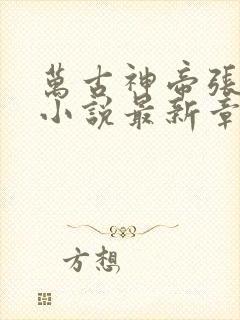 萬古神帝張
小說最新章
方想